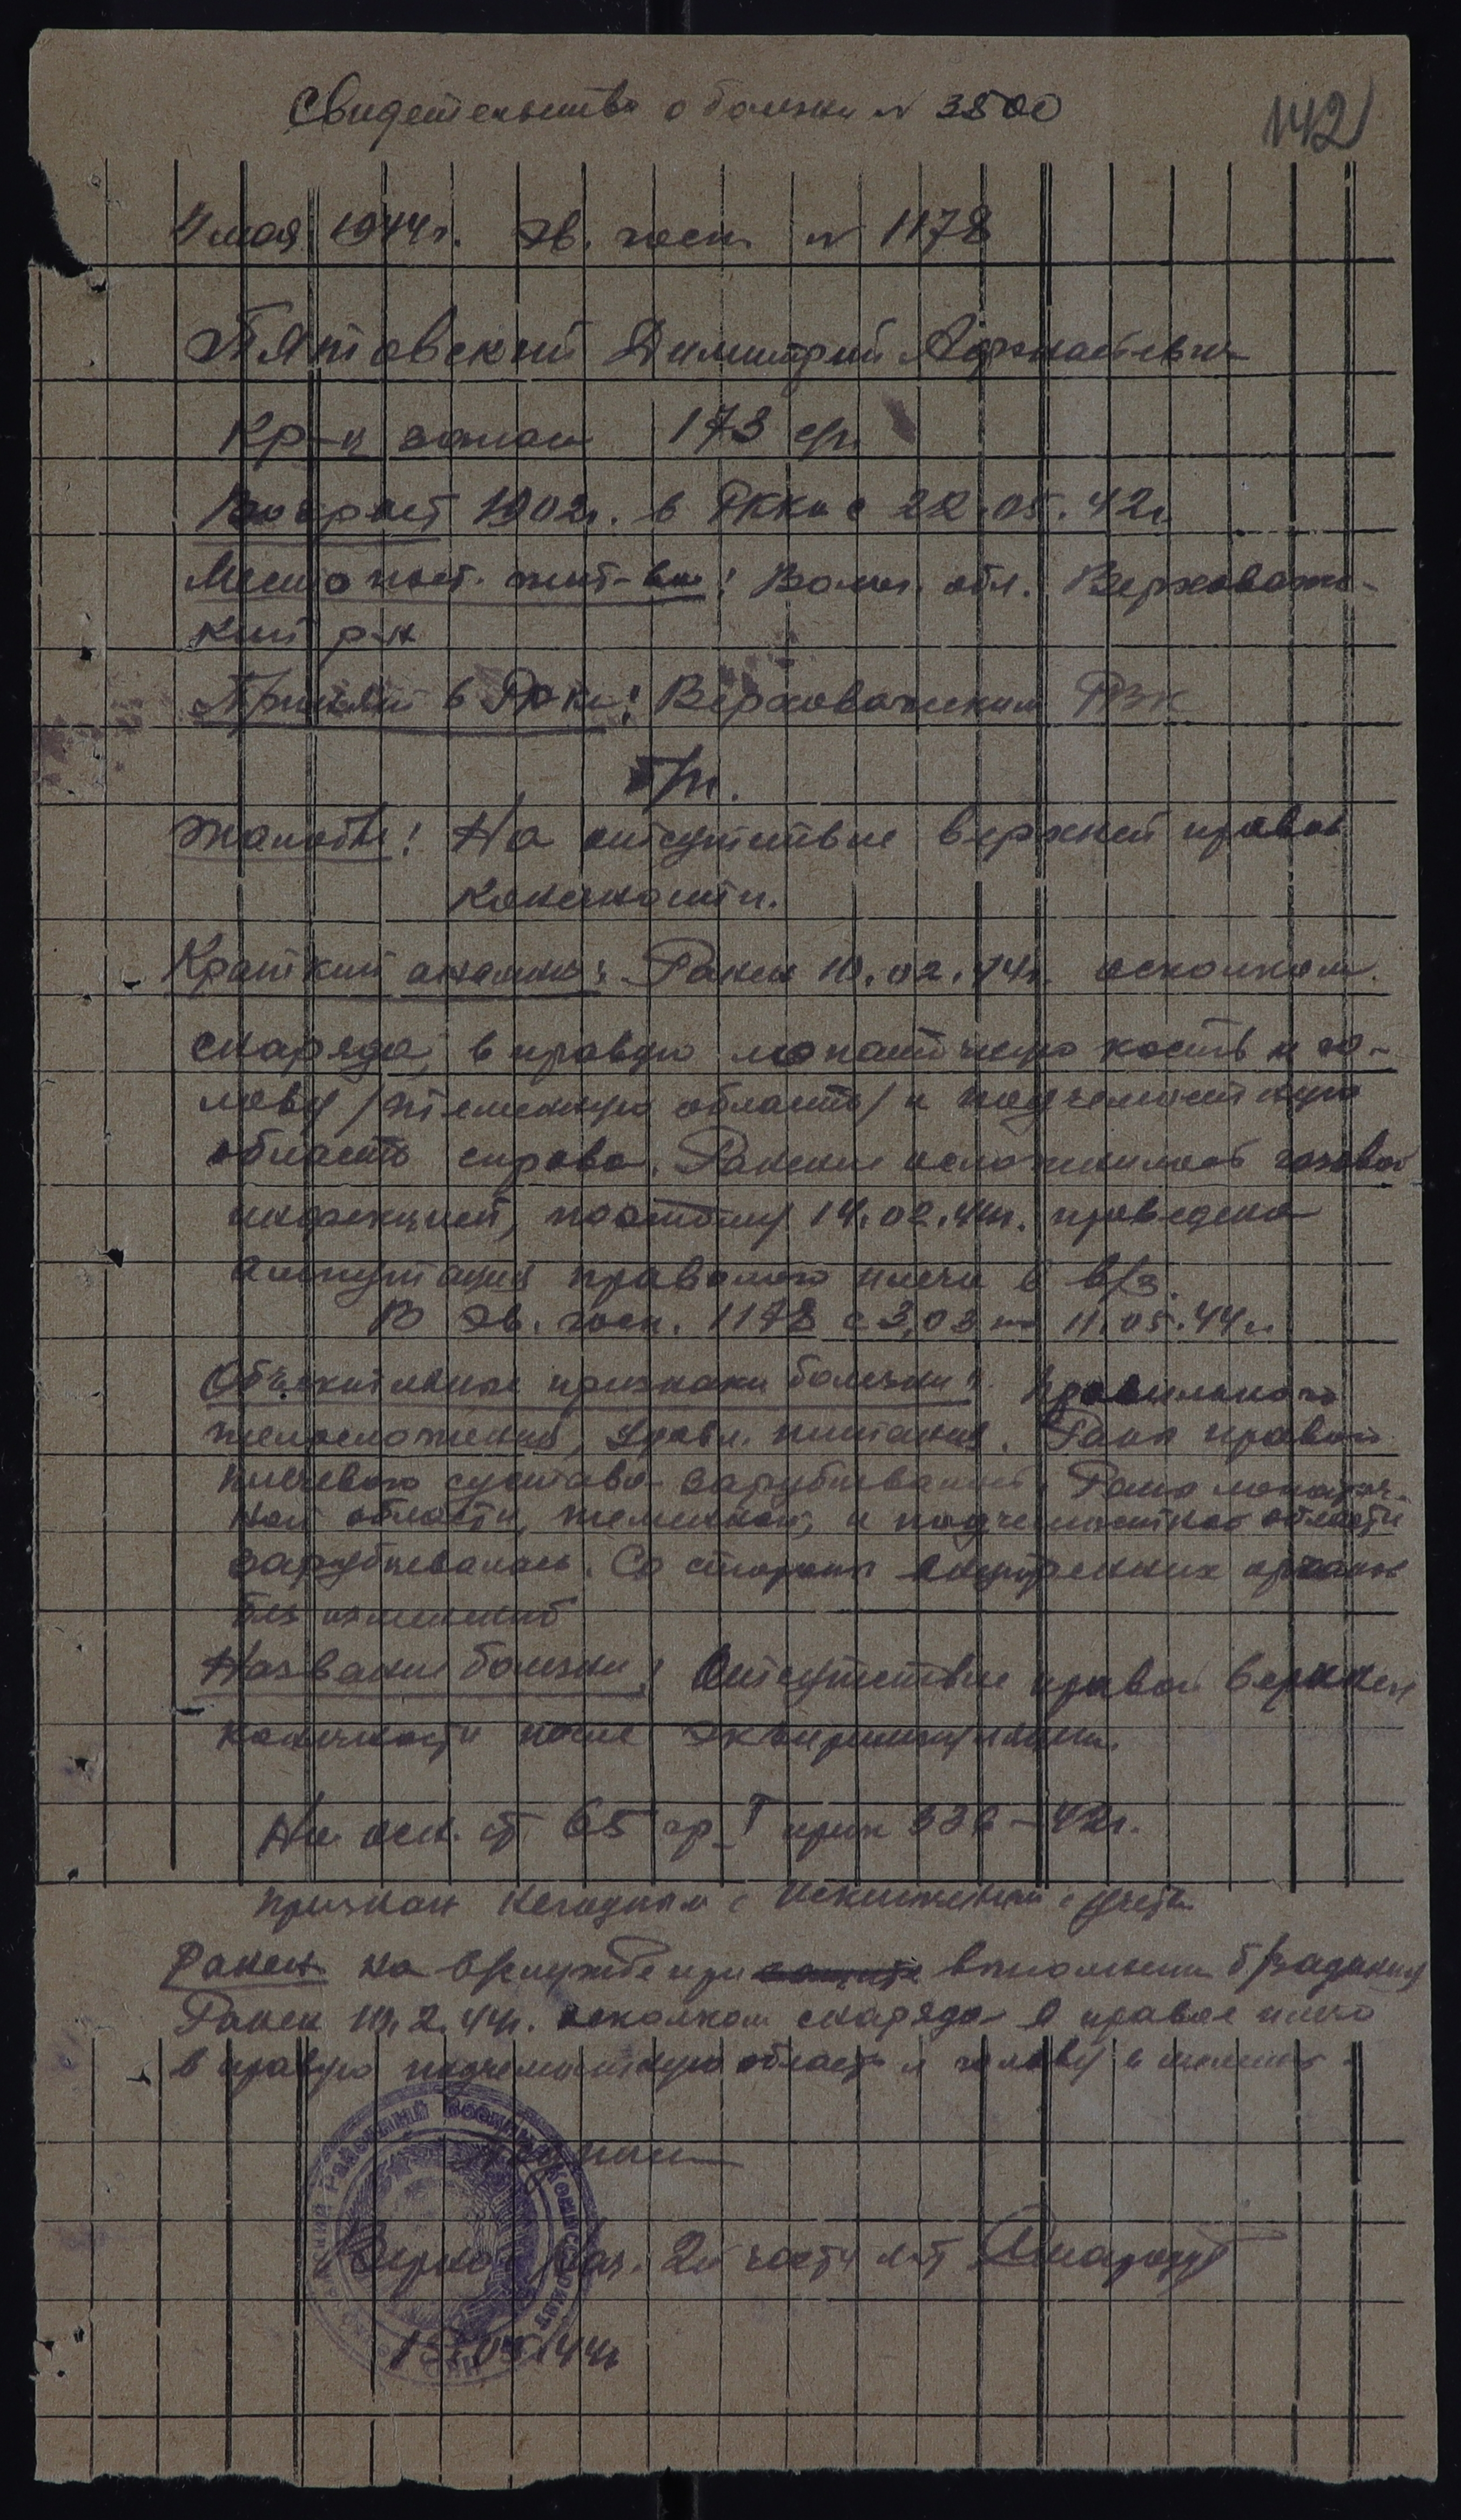 Свидетельство о болезни № 3500
142
11 мая 1944г. Эв. госп. № 1178
Пятовский Димитрий Афонасьевич
Кр-ц запаса 173 сп
Возраст 1902г. в РККА с 22.05.42г.
Место пост. жит-ва: Волог. обл. Верховаж-
кий р-н
Принят в РККА: Верховажским РВК
б/п.
Жалобы: На отсутствие верхней правой
конечности.
Краткий анамнез: Ранен 10.02.44г. осколком
снаряда, в правую лопаточную кость и го-
лову /теменную область/ и подчелюстную
область справа. Ранение осложнилось газовой
инфекцией, поэтому 14.02.44г. проведена
ампутация правого плеча в в/з.
В Эв. госп. 1178 с 3.03 по 11.05.44г.
Объективные признаки болезни: правильного
телосложения, удовл. питания. Рана правого
плечевого сустава зарубцевания. Рана лопаточ-
ной области, теменной, и подчелюстной области
зарубцевалась. Со стороны внутренних органов
без изменений
Название болезни: Отсутствие правой верхней
конечности после
На осн. ст. 65 гр I прик 336-42г.
признан негодным с исключением с учета
Ранен на в/службе при выполнении б/задания
Ранен 10.2.44г. осколком снаряда в правое плечо
в правую подчелюстную область и голову в
Районный Военный Комиссариат
Верно: Нач. 2й части л-т